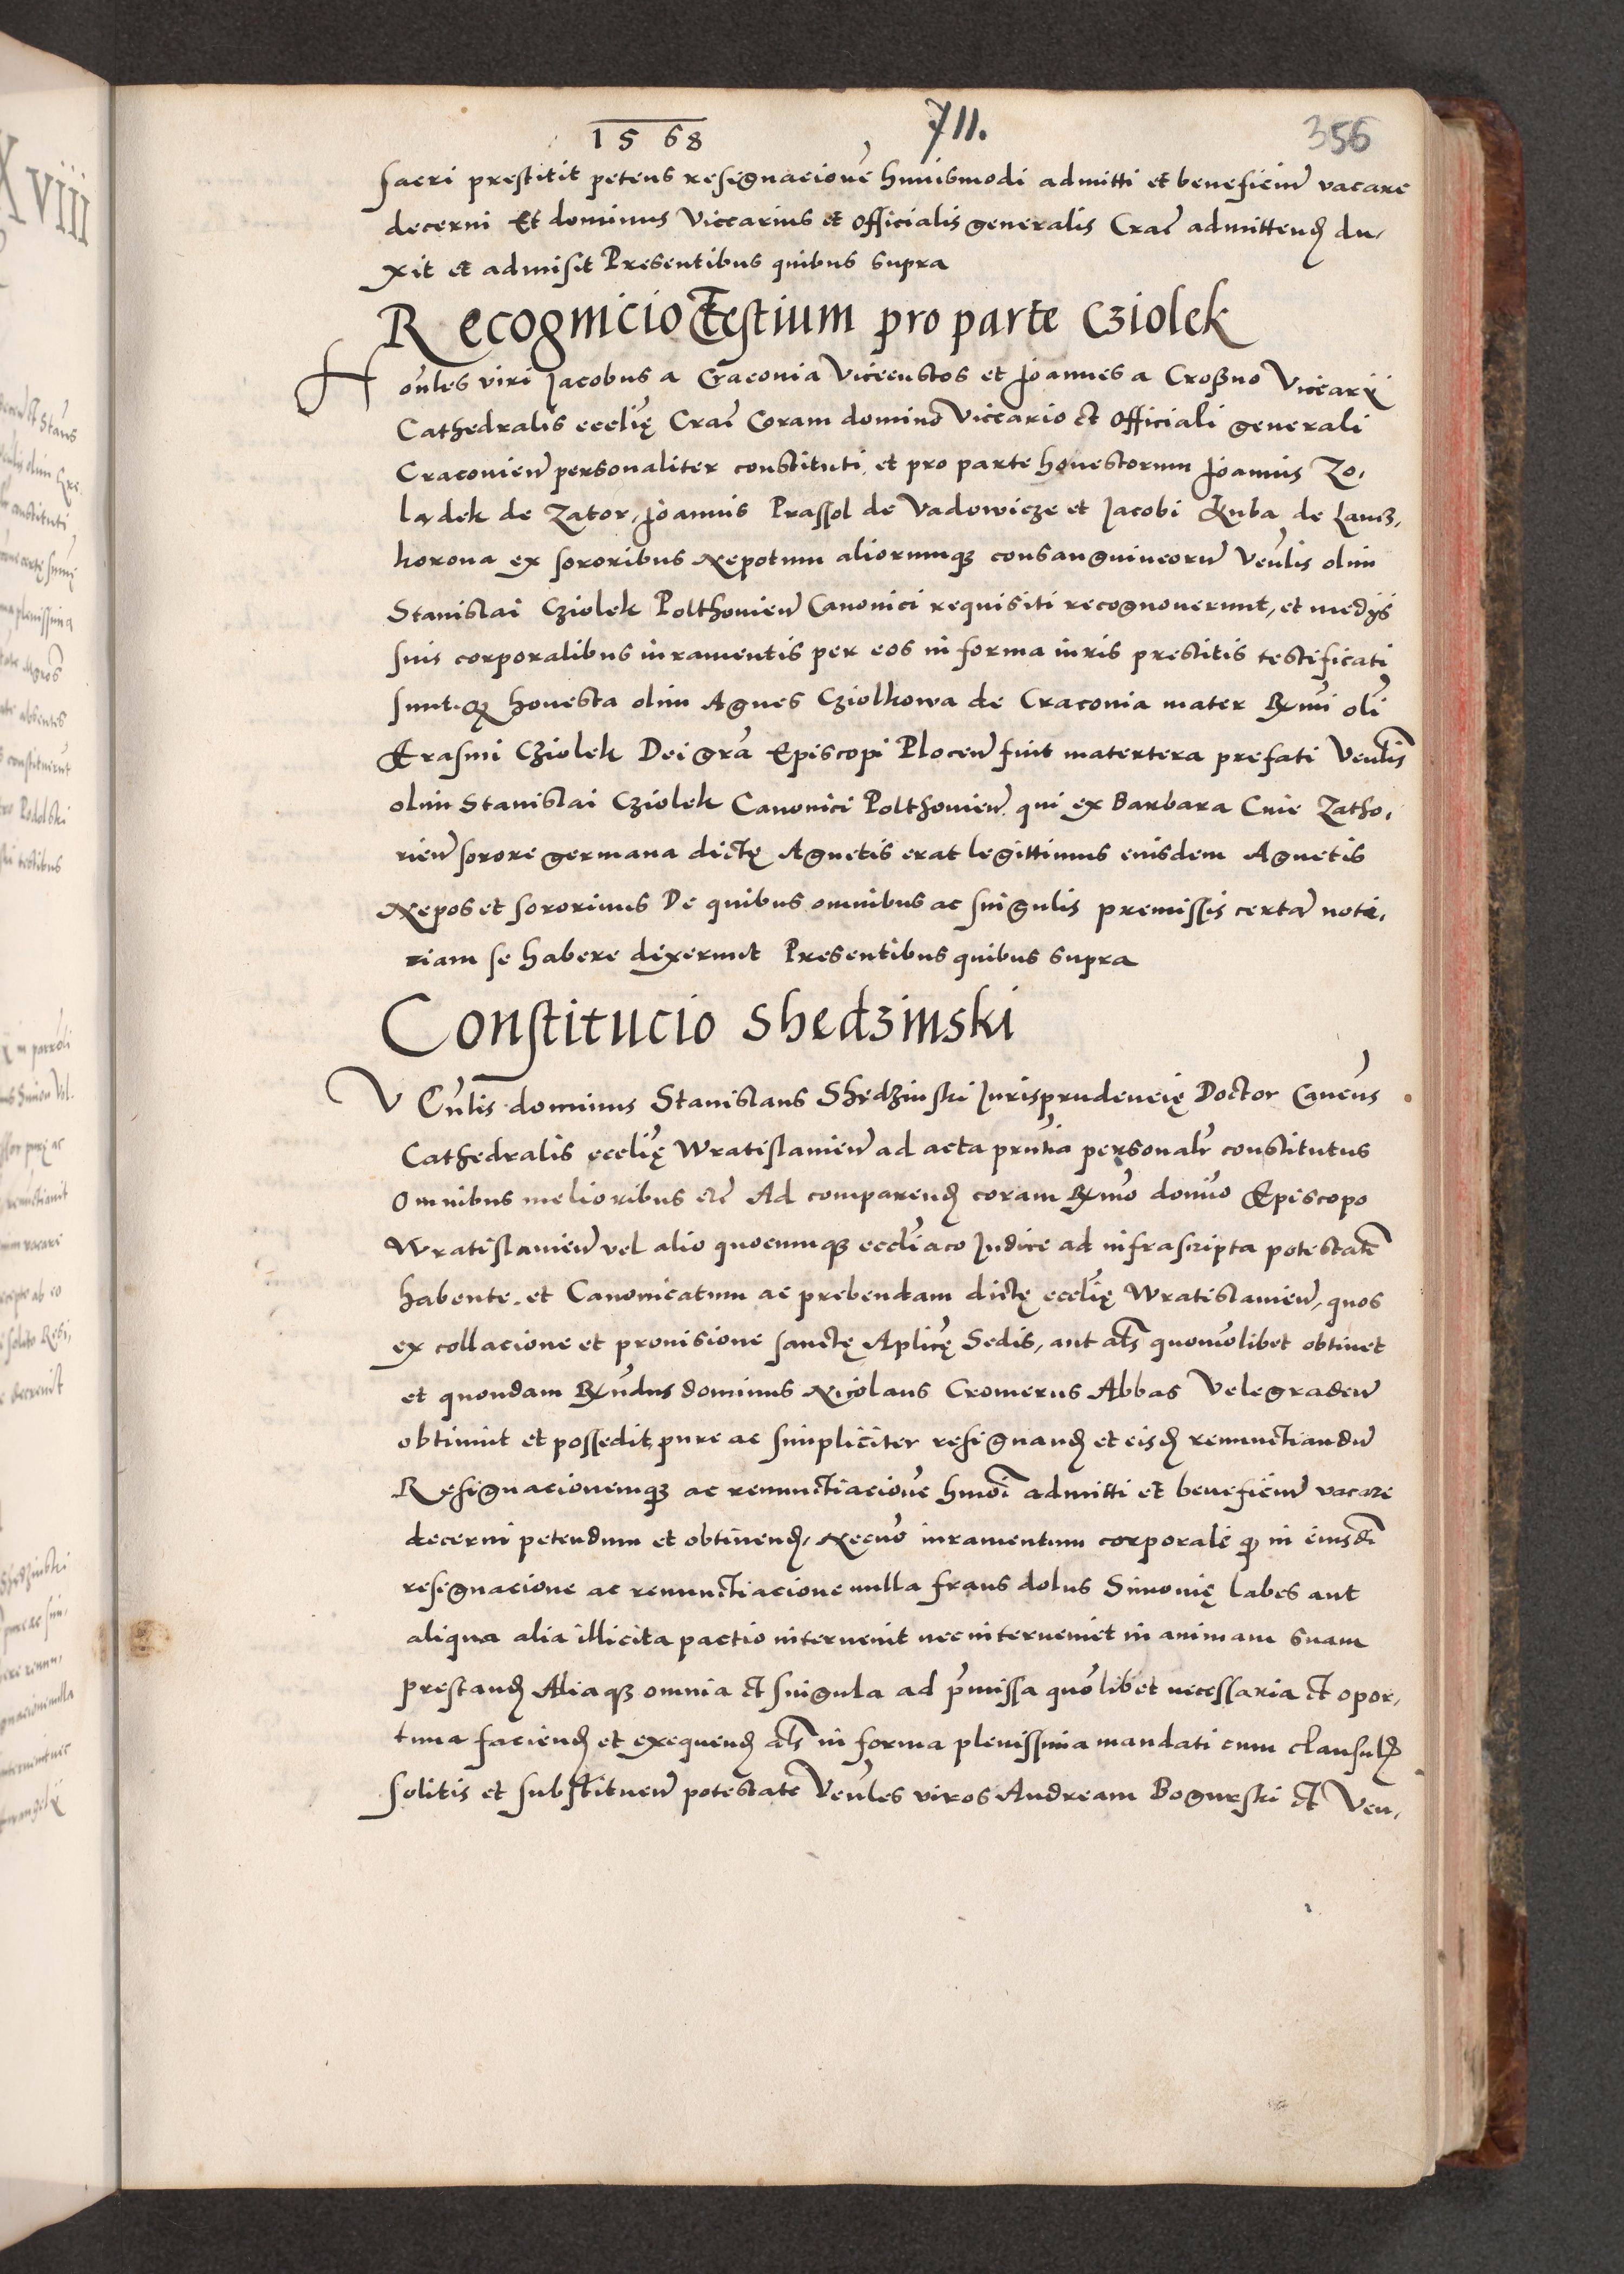 1568 711. 356
sacri prestitit petens resignacionē huiusmodi admitti et beneficiū vacare
decerni Et dominus Viccarius et Officialis generalis Crac̄ admittend̄ du,
xit et admisit Presentibus quibus supra
Recognicio Testium pro parte Cziolek
Honles viri Jacobus a Cracouia Vicecustos et Joannes a Croßno Viccarij
Cathedralis ecclīę Crac̄ Coram domino Viccario et Officiali generali
Cracouien̄ personaliter constituti, et pro parte honestorum Joannis Zo,
ladek de Zator, Joannis Prassol de Vadowicze et Jacobi Kuba de Lancz,
korona ex sororibus Nepotum aliorumqȝ consanguineorū Venlis olim
Stanislai Cziolek Polthouien̄ Canonici requisiti recognouerunt, et medijs
suis corporalibus iuramentis per eos in forma iuris prestitis testificati
sunt. qȝ honesta olim Agnes Cziolkowa de Cracouia mater Rx̄mi oli
Erasmi Cziolek Dei grā Episcopi Plocen̄ fuit matertera prefati Venlis
olim Stanislai Cziolek Canonici Polthouien̄ qui ex Barbara Ciue Zatho,
rien̄ sorore germana dictę Agnetis erat legittimus eiusdem Agnetis
Nepos et sororinus De quibus omnibus ac singulis premissis certā noti,
ciam se habere dixerunt Presentibus quibus supra
Constitucio Shedzinski
VEn̄lis dominus Stanislaus Shedzinski Jurisprudencię Doctor Canc̄us
Cathedralis ecclīę Wratislauien̄ ad acta prn̄tia personalr̄ constitutus
Omnibus melioribus etc̄ Ad comparend̄ coram Rx̄mo domīo Episcopo
Wratislauien̄ vel alio quocumqȝ ecclīaco Judice ad infrascripta potestatē
habente. et Canonicatum ac prebendam dictę ecclīę Wratislauien̄, quos
ex collacione et prouisione sanctę Aplicę Sedis, aut als̄ quomōlibet obtinet
et quondam Rx̄ndus dominus Nicolaus Cromerus Abbas Velegraden̄
obtinuit et possedit, pure ac simpliciter resignand̄ et eisd̄ renunctiandū
Resignacionemqȝ ac renunctiacionē hmōi admitti et beneficiū vacare
decerni petendum et obtinend̄, Necnō iuramentum corporale qȝ in eiusdī
resignacione ac renunctiacione nulla fraus dolus Simonię labes aut
aliqua alia illicita pactio interuenit nec interueniet in animam suam
prestand̄ Aliaqȝ omnia et singula ad p̄missa quōlibet necessaria et opor,
tuna faciend̄ et exequend̄ als̄ in forma plenissima mandati cum clausulis
solitis et substituen̄ potestate Venles viros Andream Bogurski et Ven,